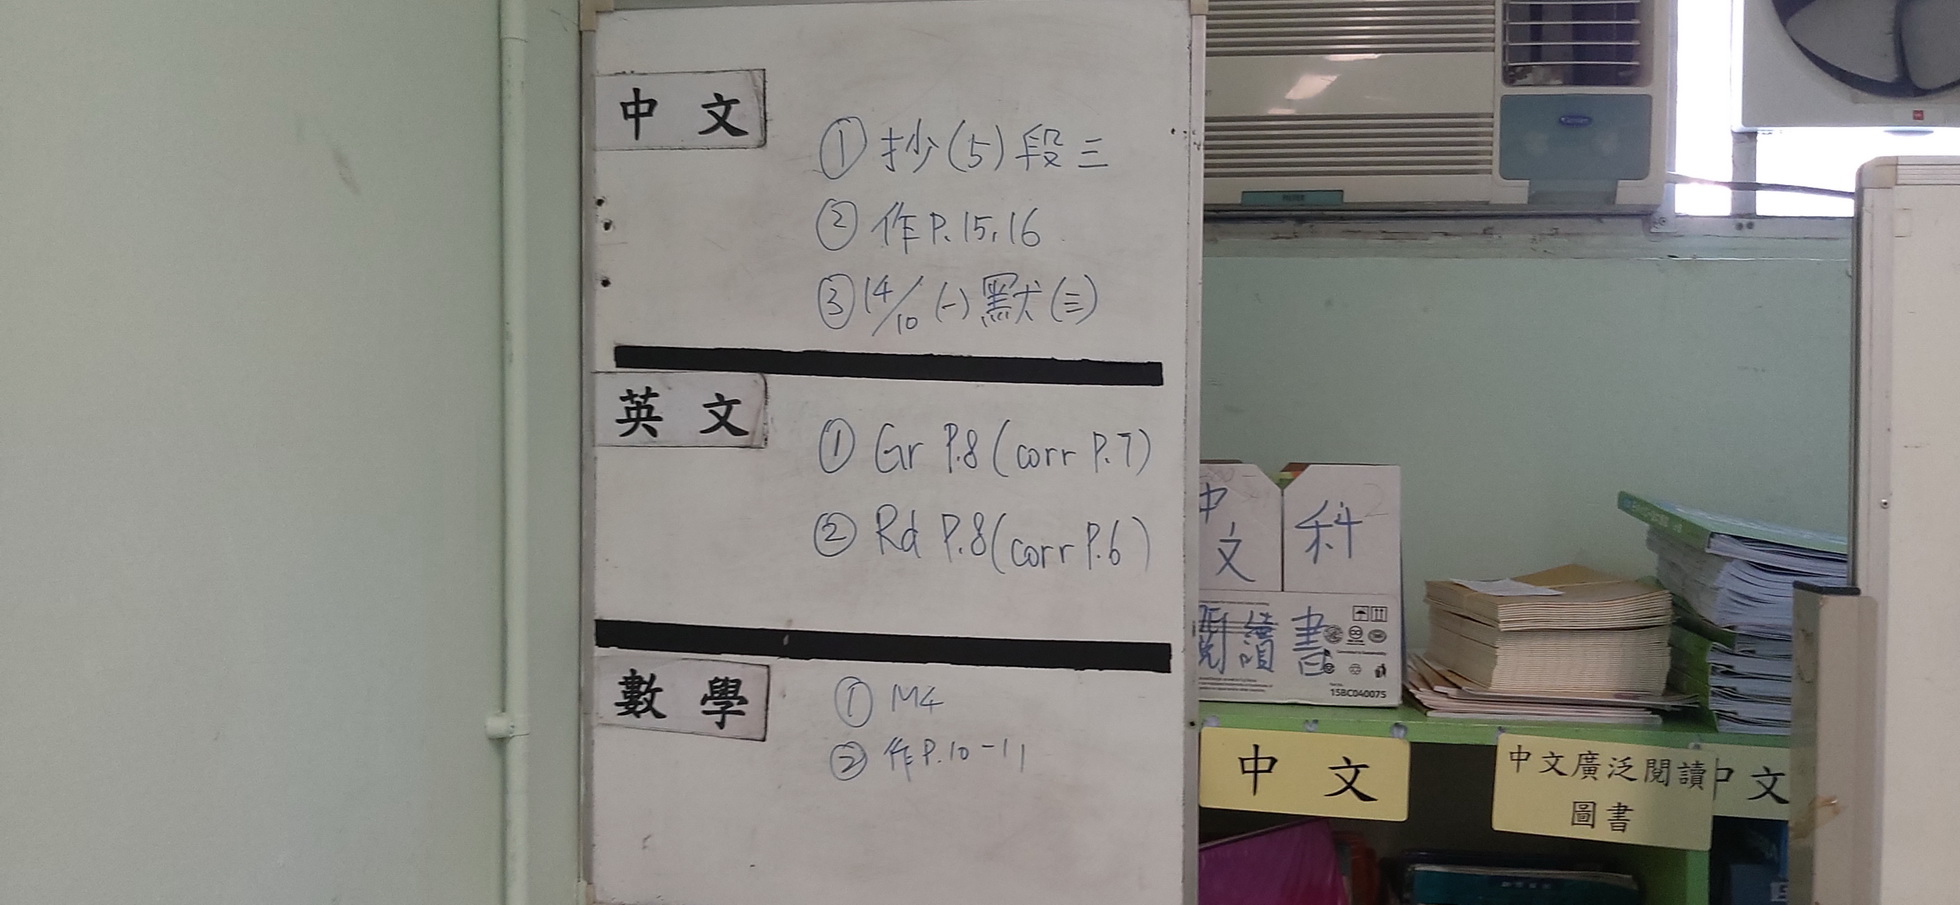 中文
① 抄(5)段三
② 作P.15,16
③ 14/10 (一) 默(三)
英文
① Gr P.8 (corr P.7)
② Rd P.8 (corr P.6)
數學
① M4
② 作P.10-11
中文科
閱讀書
15BC040075
中文
中文廣泛閱讀
圖書
中文